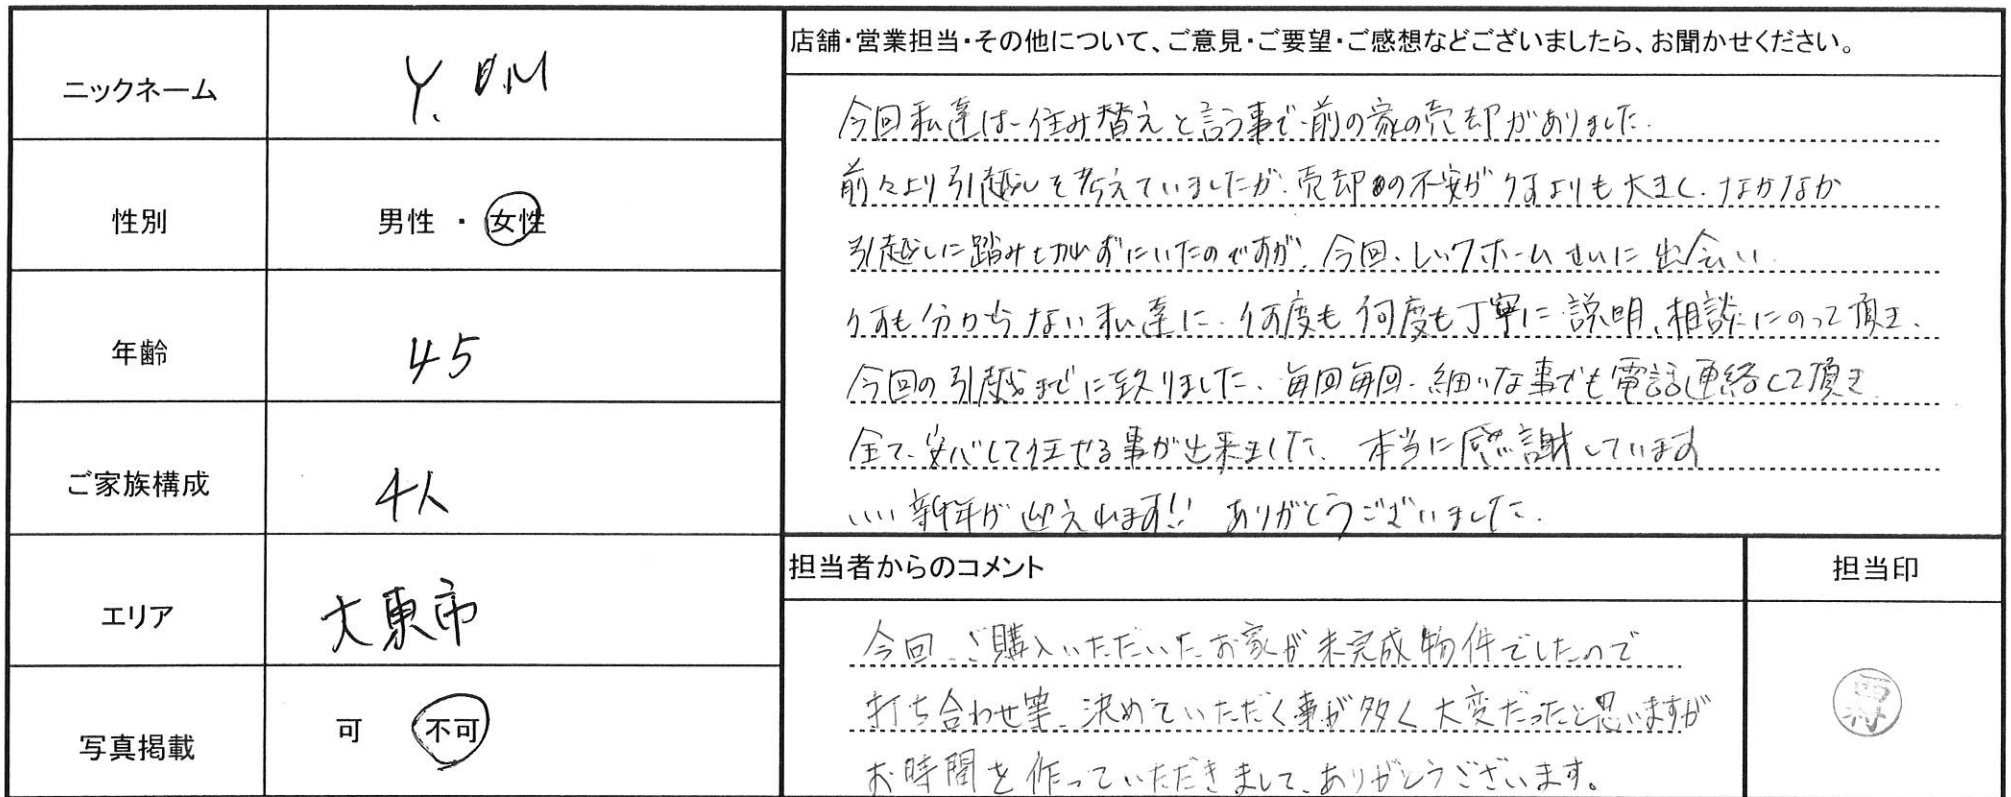 ニックネーム
Y. O.M
性別
男性 ・ 女性
年齢
45
ご家族構成
4人
エリア
大東市
写真掲載
可 不可
店舗・営業担当・その他について、ご意見・ご要望・ご感想などございましたら、お聞かせください。
今回私達は、住み替えと言う事で、前の家の売却がありました。
前々より引越しを考えていましたが、売却の不安が何よりも大きく、なかなか
引越しに踏み切れずにいたのですが、今回、レックホームさんに出会い、
何も分からない私達に、何度も何度も丁寧に説明、相談にのって頂き、
今回の引越までに至りました。毎回毎回、細いな事でも電話連絡して頂き
全て、安心して任せる事が出来ました。本当に感謝しています
いい新年が迎えれます!! ありがとうございました。
担当者からのコメント
担当印
今回、ご購入いただいたお家が未完成物件でしたので
打ち合わせ等、決めていただく事が多く大変だったと思いますが
お時間を作っていただきまして、ありがとうございます。